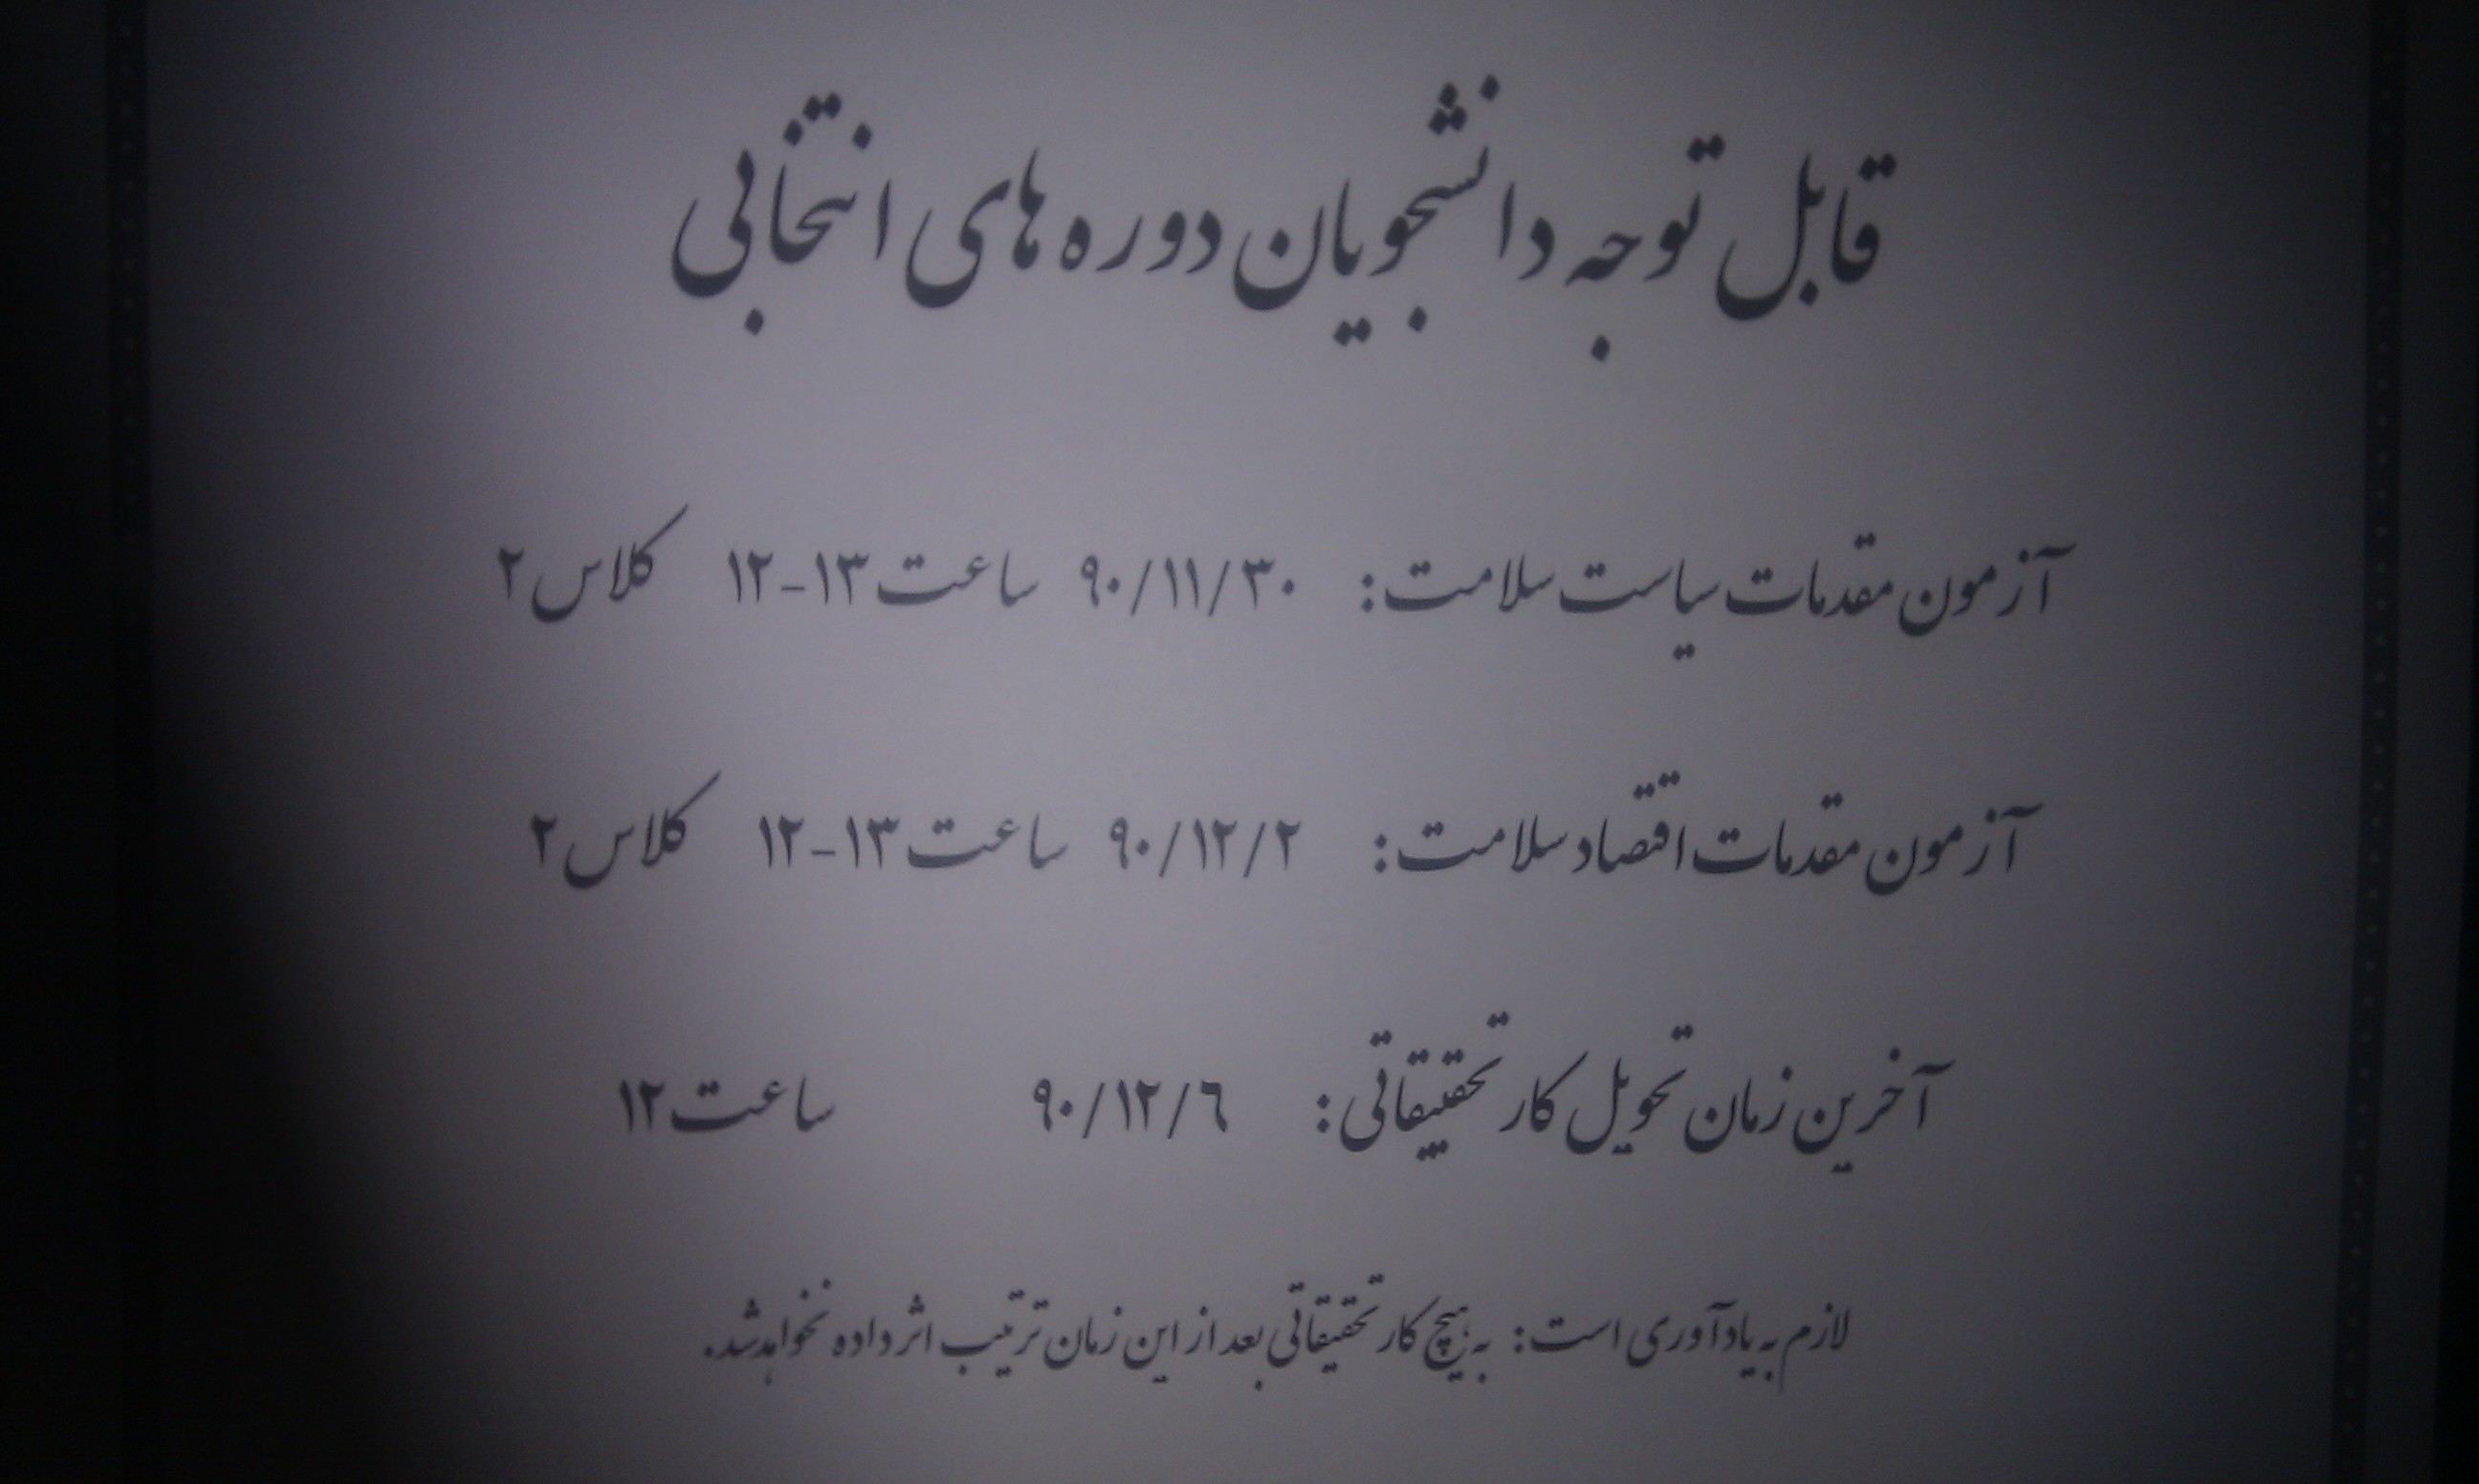 قابل توجه دانشجویان دوره های انتخابی
آزمون مقدمات سیاست سلامت: ۹۰/۱۱/۳۰ ساعت ۱۳-۱۲ کلاس ۲
آزمون مقدمات اقتصاد سلامت: ۹۰/۱۲/۲ ساعت ۱۳-۱۲ کلاس ۲
آخرین زمان تحویل کار تحقیقاتی: ۹۰/۱۲/۶ ساعت ۱۲
لازم به یادآوری است: به هیچ کار تحقیقاتی بعد از این زمان ترتیب اثر داده نخواهد شد.